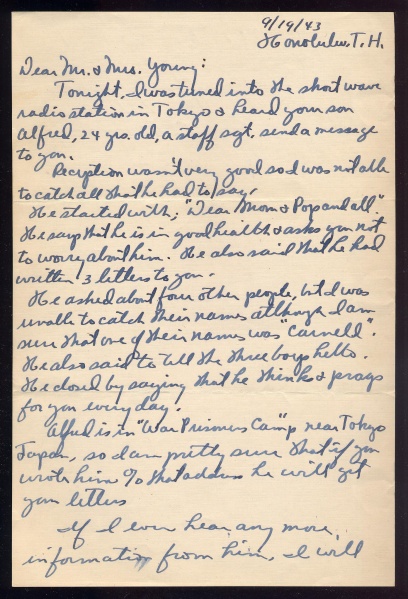 9/19/43
Honolulu, T.H.
Dear Mr. & Mrs. Young:
Tonight, I was tuned into the short wave
radio station in Tokyo & heard your son
Alfred, 24 yrs. old, a staff sgt. send a message
to you.
Reception wasn't very good so I was not able
to catch all that he had to say.
He started with, "Dear Mom & Pop and all".
He says that he is in good health & asks you not
to worry about him. He also said that he had
written 3 letters to you.
He asked about four other people, but I was
unable to catch their names although I am
sure that one of their names was "Carnell".
He also said to tell the three boys hello.
He closed by saying that he thinks & prays
for you every day.
Alfred is in "War Prisoners Camp" near Tokyo
Japan, so I am pretty sure that if you
wrote him % that address he will get
your letters
If I ever hear any more,
information from him, I will